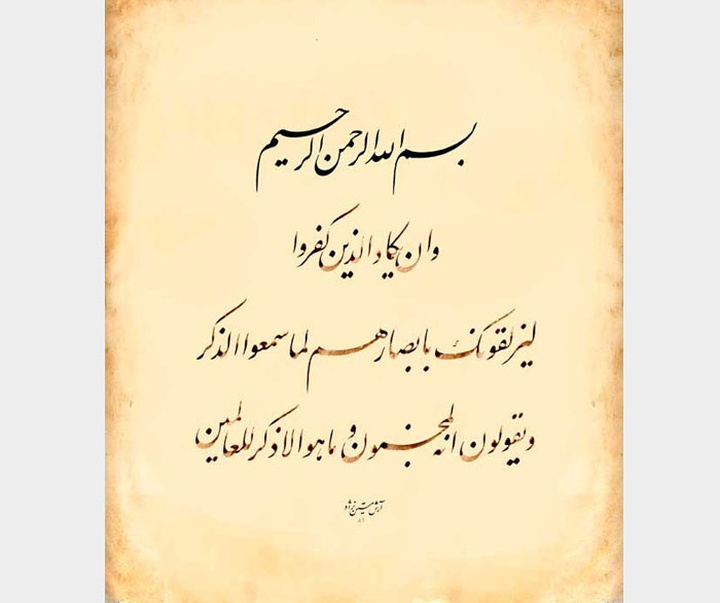 بسم الله الرحمن الرحیم
وان یکاد الذین کفروا
لیزلقونک بابصارهم لما سمعوا الذکر
ویقولون انه لمجنون و ما هو الا ذکر للعالمین
آرش
۸۶